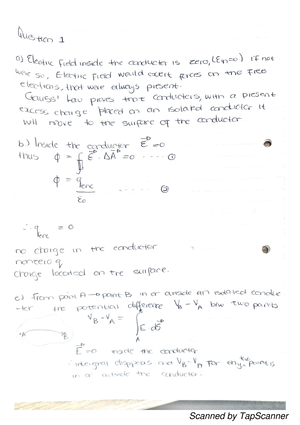 Question 1
a) Electric field inside the conductor is zero, (E=0) if not
were so, Electric Field would exert forces on the free
electrons, that were always present.
Gauss' Law proves that conductors, with a present
excess charge placed on an isolated conductor it
will move to the surface of the conductor
b) Inside the conductor E = 0
thus ϕ = ∮ E · ΔA = 0 ..... ①
ϕ = q enc / ε₀ ..... ②
∴ q enc = 0
no charge in the conductor
nonzero q
Charge located on the surface.
c) From point A → point B in or outside an isolated conduc
-ter the potential difference V_B - V_A b/w two points
V_B - V_A = ∫
B
A
E = 0 inside the conductor
integral disappears and V_B - V_A for any points
in or outside the conductor.
Scanned by TapScanner